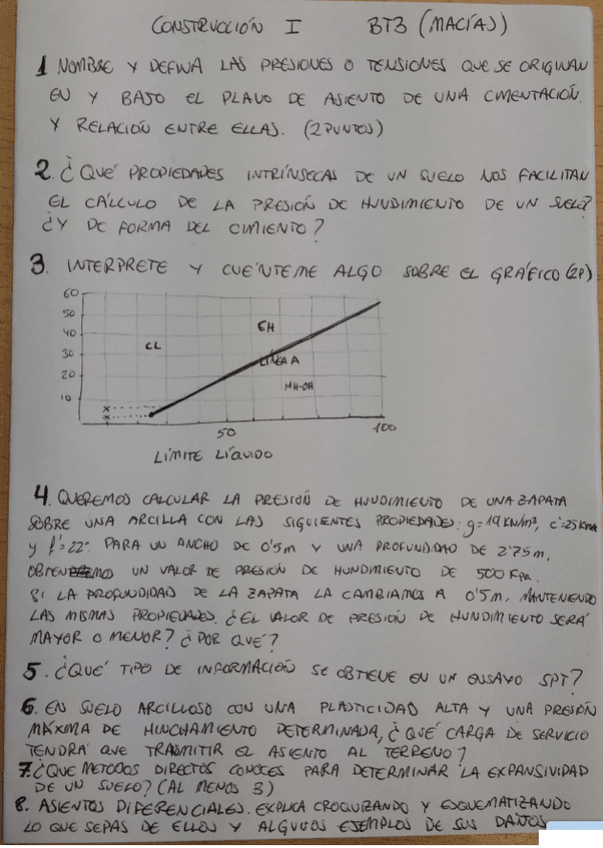 CONSTRUCCIÓN I BT3 (MACÍAS)
1 NOMBRE Y DEFINA LAS PRESIONES O TENSIONES QUE SE ORIGINAN
EN Y BAJO EL PLANO DE ASIENTO DE UNA CIMENTACIÓN.
Y RELACIÓN ENTRE ELLAS. (2 PUNTOS)
2. ¿QUÉ PROPIEDADES INTRÍNSECAS DE UN SUELO NOS FACILITAN
EL CÁLCULO DE LA PRESIÓN DE HUNDIMIENTO DE UN SUELO?
¿Y DE FORMA DEL CIMIENTO?
3. INTERPRETE Y CUÉNTEME ALGO SOBRE EL GRÁFICO (2P)
60
50
40
30
20
10
CL
CH
LÍNEA A
MH-OH
50
100
LÍMITE LÍQUIDO
4. QUEREMOS CALCULAR LA PRESIÓN DE HUNDIMIENTO DE UNA ZAPATA
SOBRE UNA ARCILLA CON LAS SIGUIENTES PROPIEDADES: g=19 KN/m³, c'=25 KPa
y f'=22º PARA UN ANCHO DE 0'5m Y UNA PROFUNDIDAD DE 2'75m,
OBTENEMOS UN VALOR DE PRESIÓN DE HUNDIMIENTO DE 500 KPa.
SI LA PROFUNDIDAD DE LA ZAPATA LA CAMBIAMOS A 0'5m, MANTENIENDO
LAS MISMAS PROPIEDADES. ¿EL VALOR DE PRESIÓN DE HUNDIMIENTO SERÁ
MAYOR O MENOR? ¿POR QUÉ?
5. ¿QUÉ TIPO DE INFORMACIÓN SE OBTIENE EN UN ENSAYO SPT?
6. EN SUELO ARCILLOSO CON UNA PLASTICIDAD ALTA Y UNA PRESIÓN
MÁXIMA DE HINCHAMIENTO DETERMINADA, ¿QUÉ CARGA DE SERVICIO
TENDRÁ QUE TRASMITIR EL ASIENTO AL TERRENO?
7. ¿QUE METODOS DIRECTOS CONOCES PARA DETERMINAR LA EXPANSIVIDAD
DE UN SUELO? (AL MENOS 3)
8. ASIENTOS DIFERENCIALES. EXPLICA CROQUIZANDO Y ESQUEMATIZANDO
LO QUE SEPAS DE ELLOS Y ALGUNOS EJEMPLOS DE SUS DAÑOS